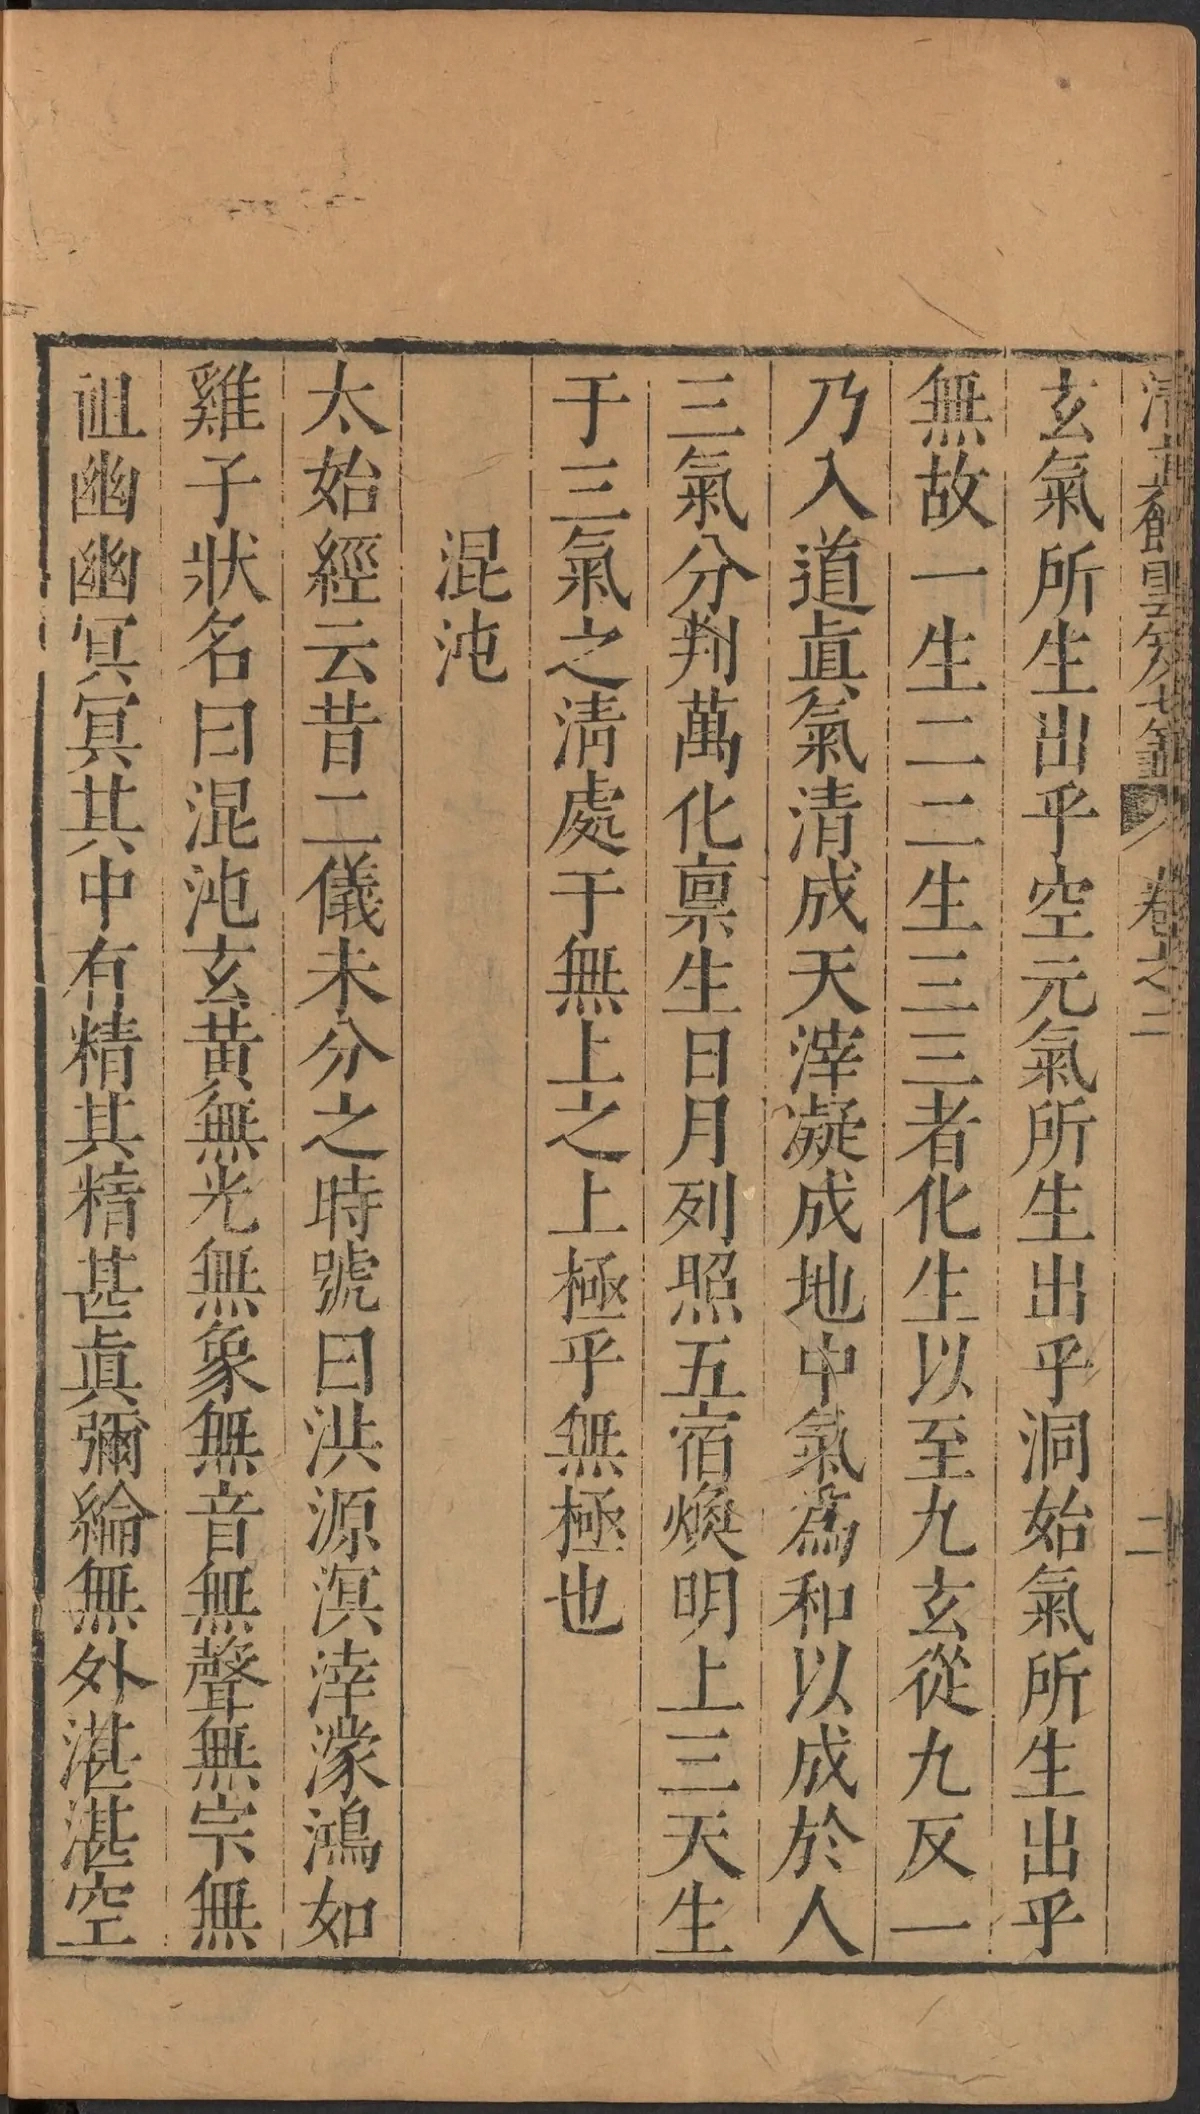 清真館雲笈七籤 卷之二 二
玄氣所生出乎空元氣所生出乎洞始氣所生出乎
無故一生二二生三三者化生以至九玄從九反一
乃入道眞氣清成天滓凝成地中氣為和以成於人
三氣分判萬化稟生日月列照五宿煥明上三天生
于三氣之清處于無上之上極乎無極也
混沌
太始經云昔二儀未分之時號曰洪源溟涬濛鴻如
雞子狀名曰混沌玄黃無光無象無音無聲無宗無
祖幽幽冥冥其中有精其精甚眞彌綸無外湛湛空